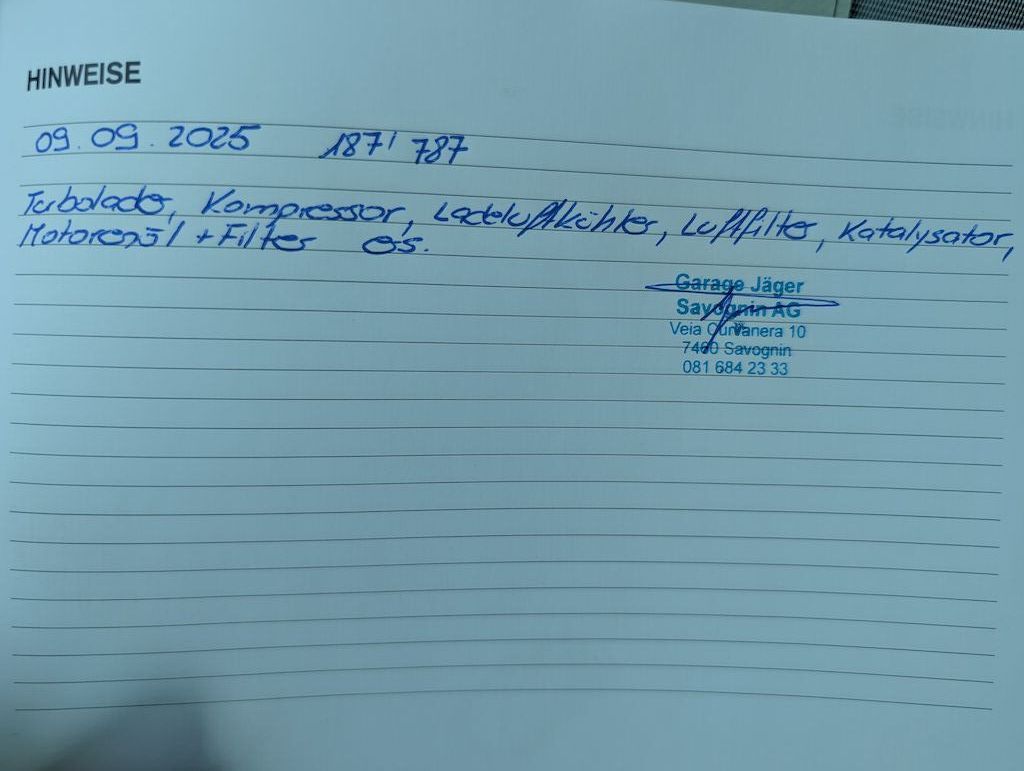 HINWEISE
09.09.2025 187'787
Turbolader, Kompressor, Ladeluftkühler, Luftfilter, Katalysator,
Motorenöl + Filter es.
Garage Jäger
Savognin AG
Veia Curvanera 10
7460 Savognin
081 684 23 33